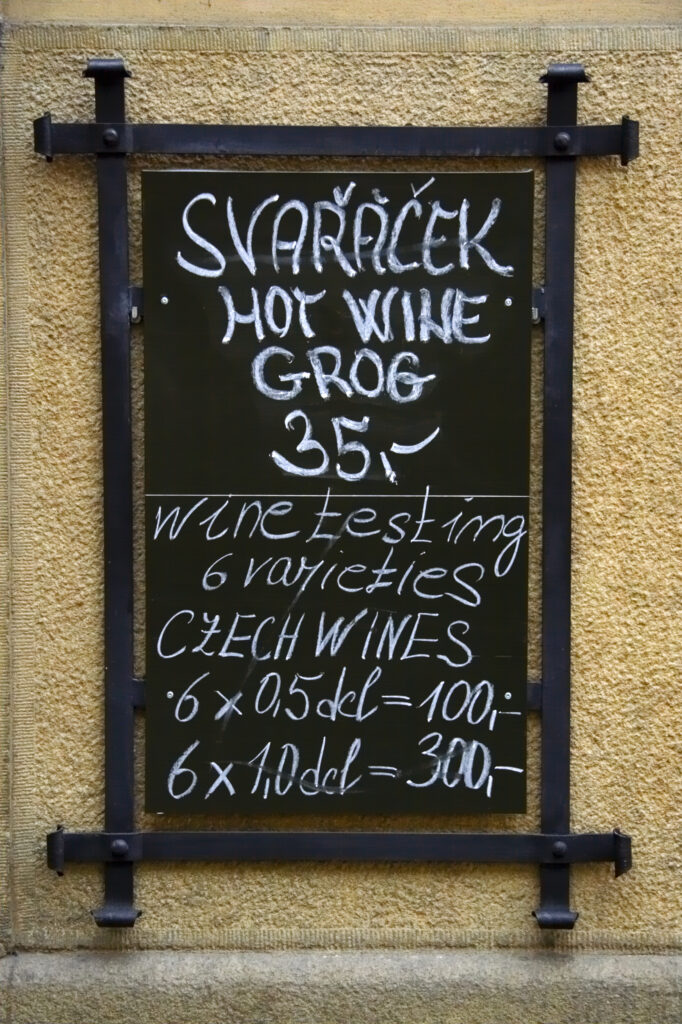 SVAŘÁČEK
HOT WINE
GROG
35,-
Wine testing
6 varieties
CZECH WINES
6 x 0,5 dcl = 100,-
6 x 1,0 dcl = 300,-